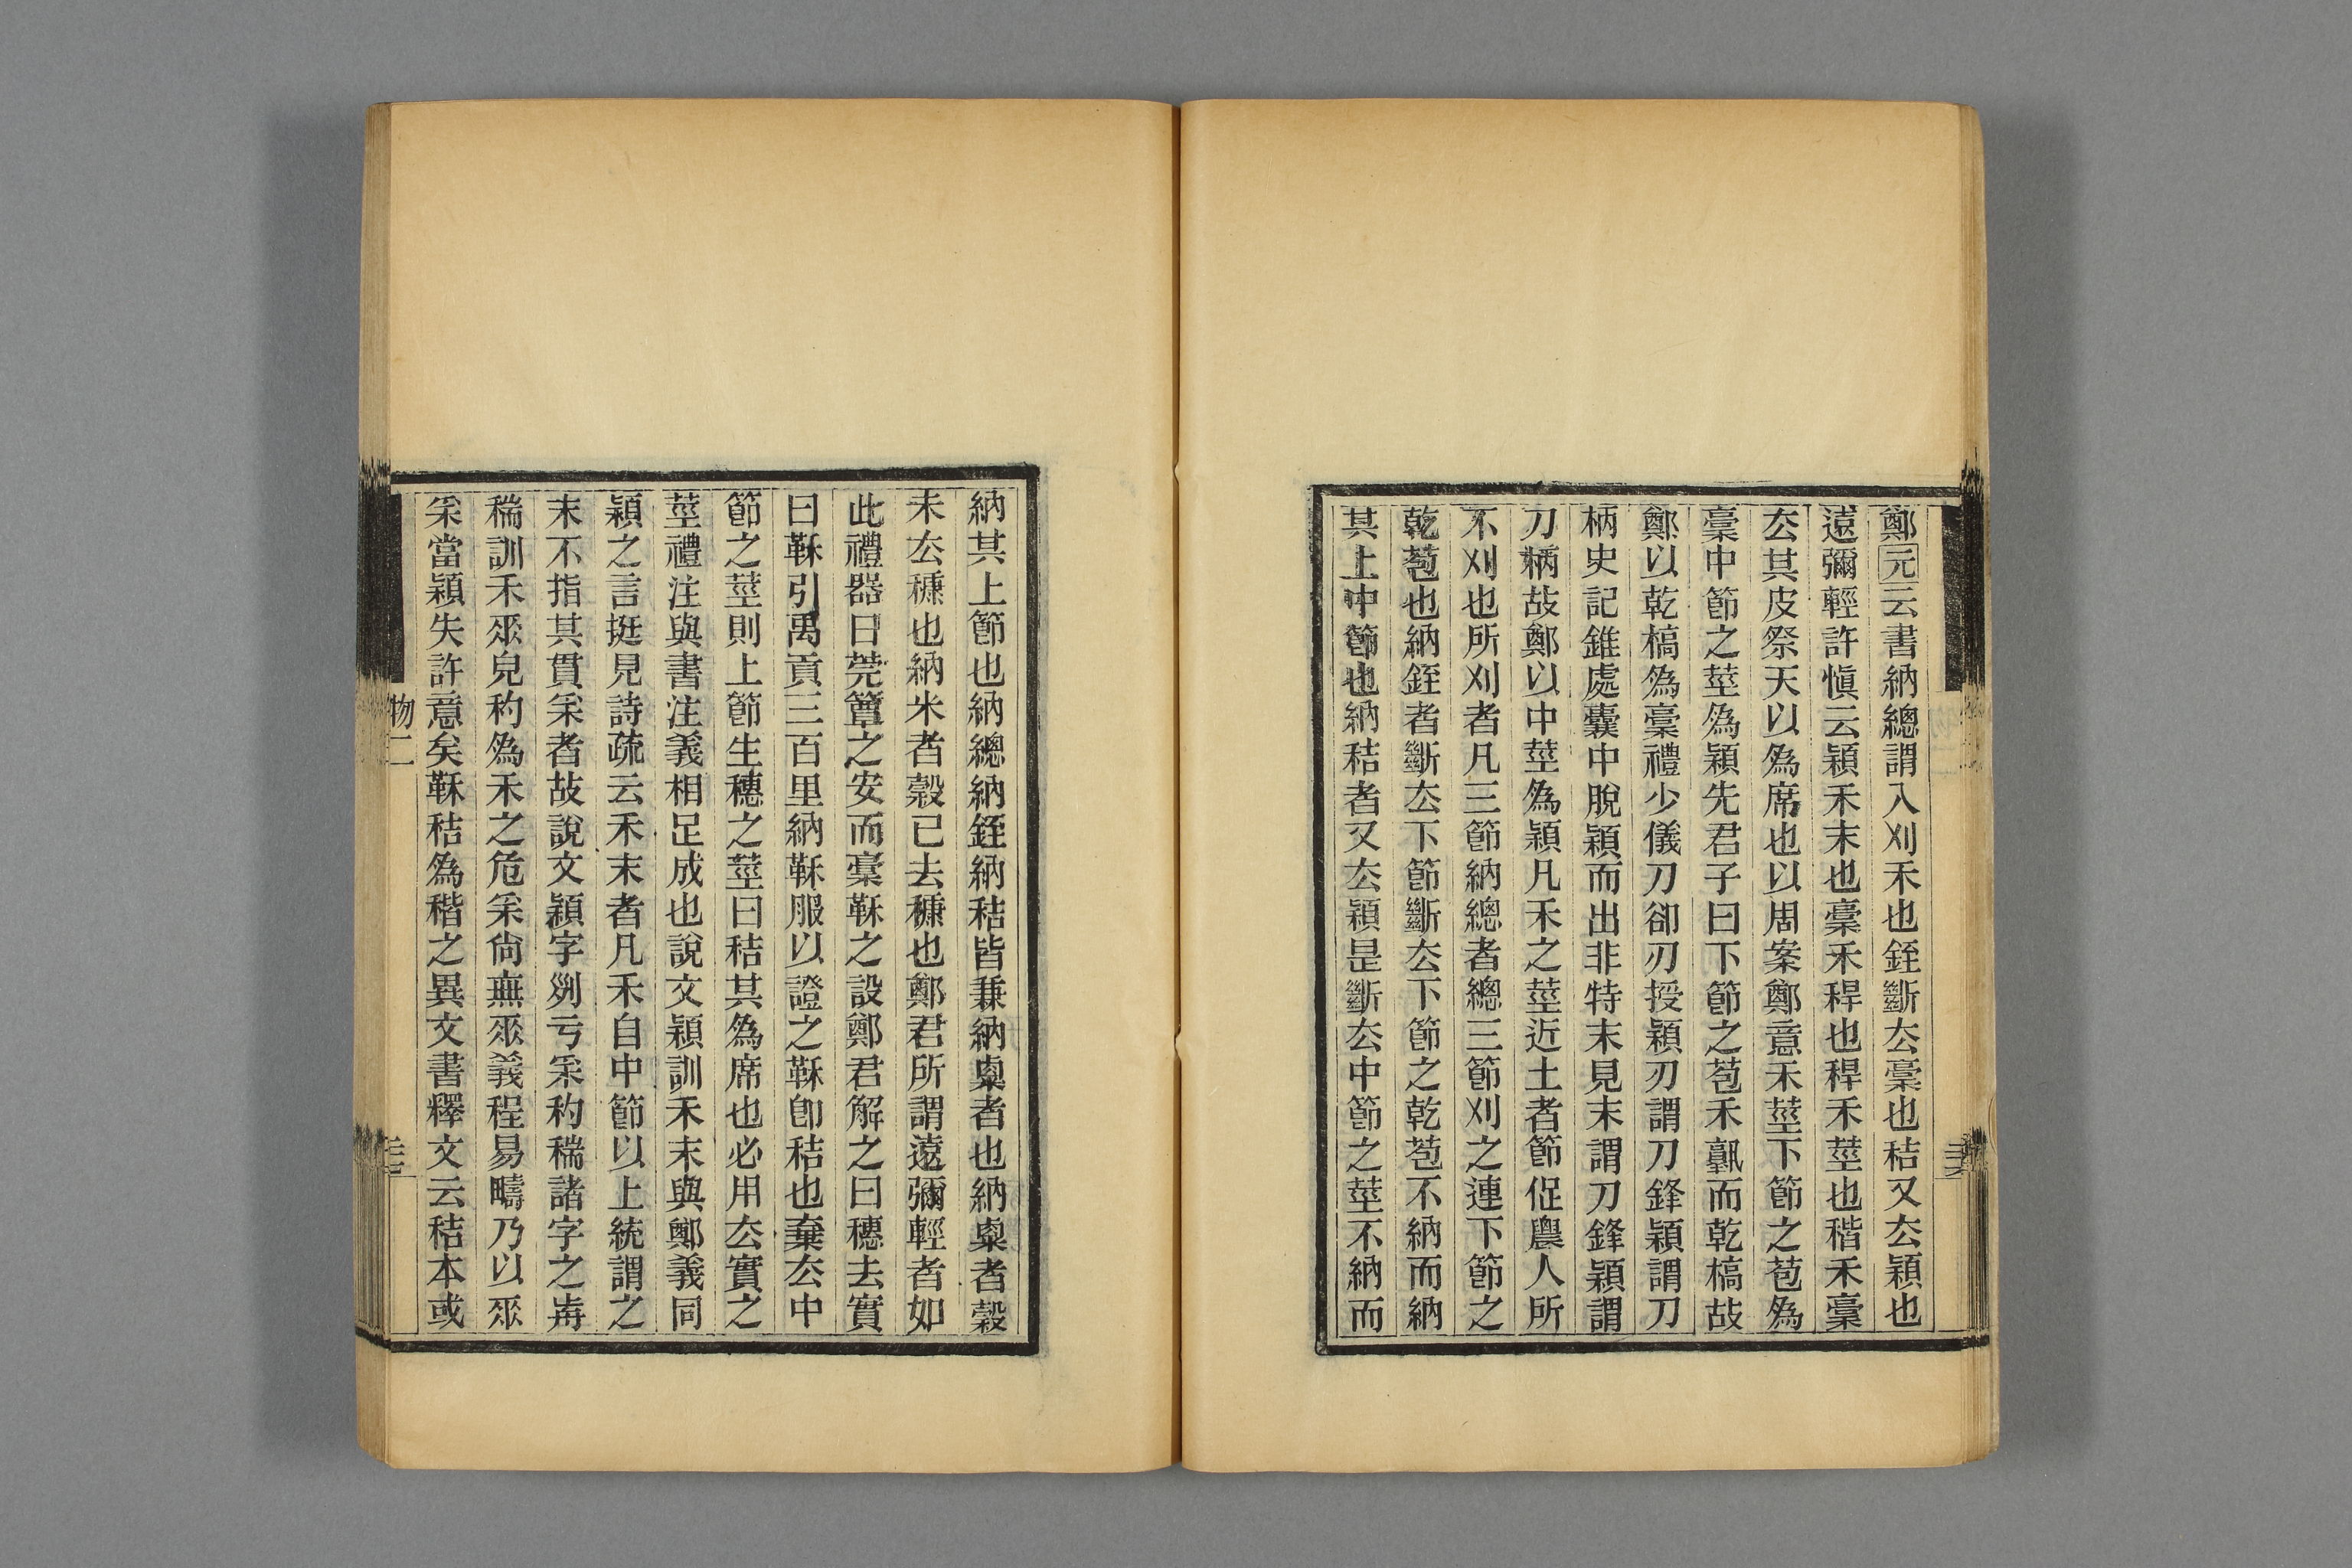 鄭元云書納總謂入刈禾也銍斷厺稾也秸又厺穎也
遠彌輕許愼云穎禾末也稾禾稈也稈禾莖也稭禾稾
厺其皮祭天以爲席也以周案鄭意禾莖下節之苞爲
稾中節之莖爲穎先君子曰下節之苞禾孰而乾槁故
鄭以乾槁爲稾禮少儀刀卻刃授穎刃謂刀鋒穎謂刀
柄史記錐處囊中脫穎而出非特末見末謂刀鋒穎謂
刀柄故鄭以中莖爲穎凡禾之莖近土者節促農人所
不刈也所刈者凡三節納總者總三節刈之連下節之
乾苞也納銍者斷厺下節斷厺下節之乾苞不納而納
其上中節也納秸者又厺穎是斷厺中節之莖不納而
納其上節也納總納銍納秸皆兼納粟者也納粟者穀
未厺穅也納米者穀已去穅也鄭君所謂遠彌輕者如
此禮器曰莞簟之安而稾鞂之設鄭君解之曰穗去實
曰鞂引禹貢三百里納鞂服以證之鞂卽秸也棄厺中
節之莖則上節生穗之莖曰秸其爲席也必用厺實之
莖禮注與書注義相足成也說文穎訓禾末與鄭義同
穎之言挺見詩疏云禾末者凡禾自中節以上統謂之
末不指其貫釆者故說文穎字𠛱亏釆秒稱諸字之歬
稱訓禾𠂹皃秒爲禾之危釆尙無𠂹義程易疇乃以𠂹
釆當穎失許意矣鞂秸爲稭之異文書釋文云秸本或
物二